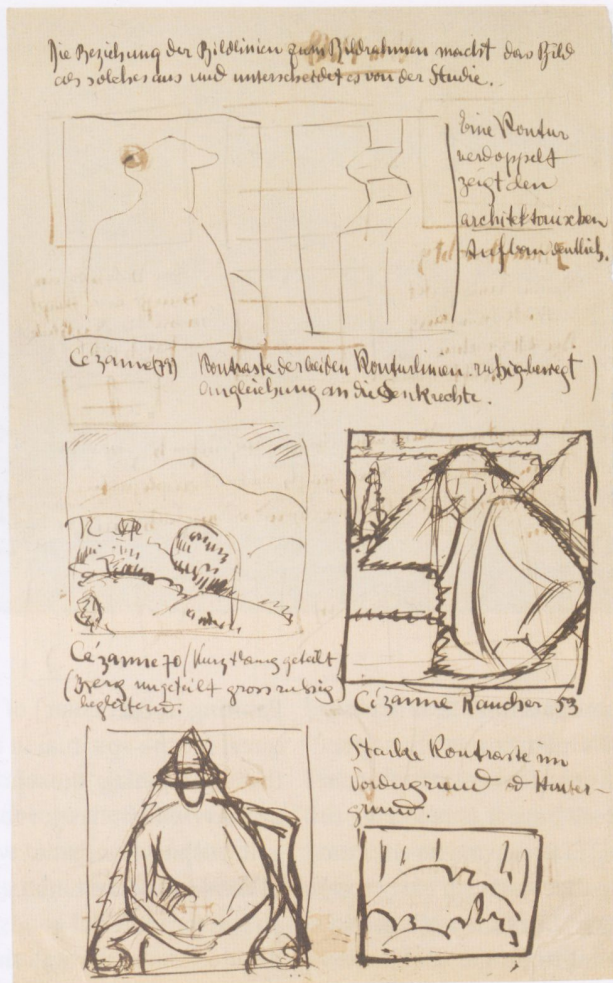 Die Beziehung der Bildlinien zum Bildrahmen macht das Bild
als solches aus und unterscheidet es von der Studie.
Eine Kontur
verdoppelt
zeigt den
architektonischen
Aufbau deutlich.
Cézanne Kontraste der beiden Konturlinien. ruhig-bewegt
Angleichung an die Senkrechte.
Cézanne 70 / geteilt
(Berg ungeteilt gross ruhig
begleitend.
Cézanne Raucher 53
Starke Kontraste im
Vordergrund Hinter-
grund.